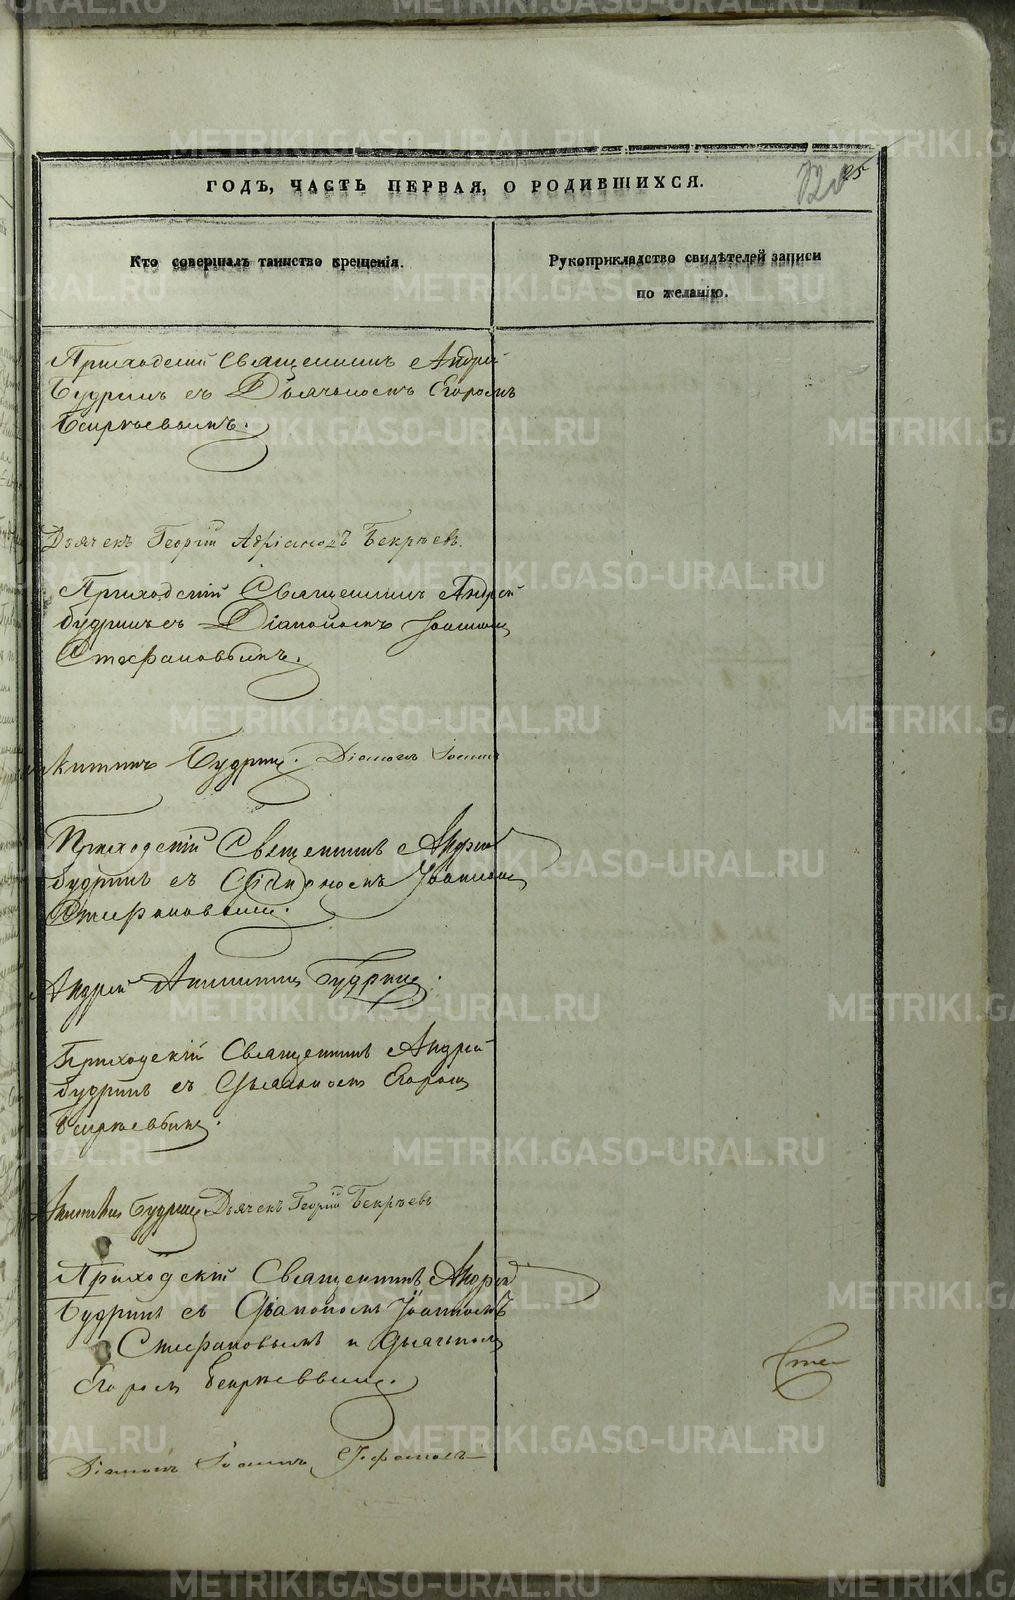 ГОДЪ, ЧАСТЬ ПЕРВАЯ, О РОДИВШИХСЯ.
25
Кто совершалъ таинство крещенія.
Рукоприкладство свидѣтелей записи
по желанію.
Приходскій Священникъ Андрей
Будринъ съ Дьячкомъ Егоромъ
Бекряевымъ.
Дьячекъ Георгій Бекряев
Приходскій Священникъ Андрей
Будринъ съ Діакономъ Іоанном
Стефановымъ.
Будрин. Діаконъ Іоаннъ
Приходскій Священникъ Андрей
Будринъ съ Діакономъ Іоанном
Стефановым.
Андрей Никитин Будрин.
Приходскій Священникъ Андрей
Будринъ съ Егором
.
Будрин Дьячекъ Георгій Бекряевъ
Приходскій Священникъ Андрей
Будринъ съ Діакономъ Іоанномъ
Стефановымъ и дьячком
Егоромъ Бекряевым.
Сте
Діаконъ Іоаннъ Стефановъ
METRIKI.GASO-URAL.RU